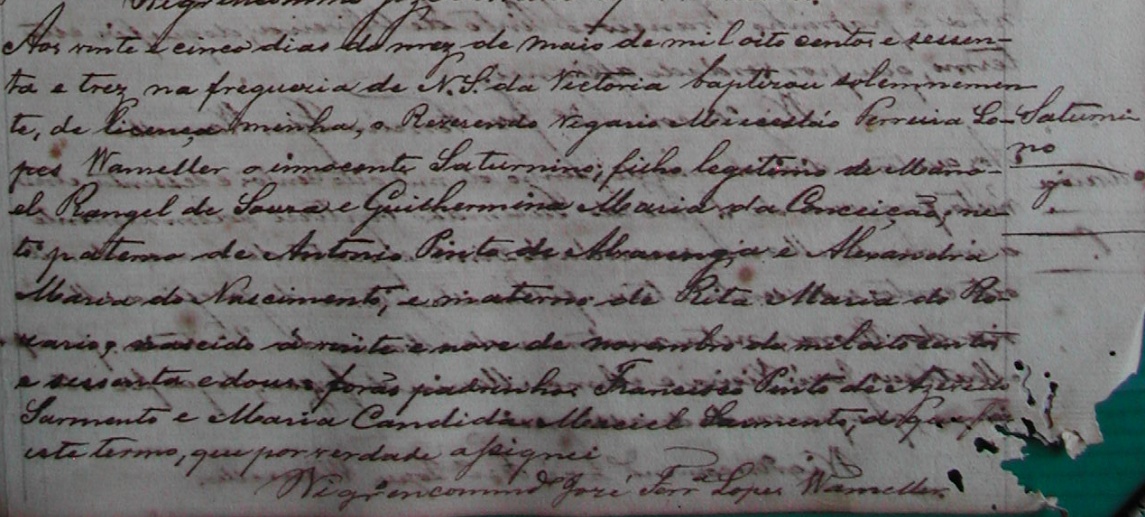 Aos vinte e cinco dias do mez de maio de mil oito centos e sessen-
ta e trez na freguezia de N. S. da Victoria baptizou solemnemen-
te, de licença minha, o Reverendo Vigario Micesláo Ferreira Lo-
pes Wameller o innocente Saturnino, filho legitimo de Mano-
el Rangel de Souza e Guilhermina Maria da Conceição, ne-
to paterno de Antonio Pinto de Alvarenga e Alexandria
Maria do Nascimento, e materno de Rita Maria do Ro-
zario, nascido á vinte e nove de novembro de mil oito centos
e sessenta e dous: forão padrinhos Francisco Pinto de Azeredo
Sarmento e Maria Candida Maciel Sarmento, do que fiz
este termo, que por verdade assignei
Vigrº encommdº José Ferrª Lopes Wameller
Saturni
no